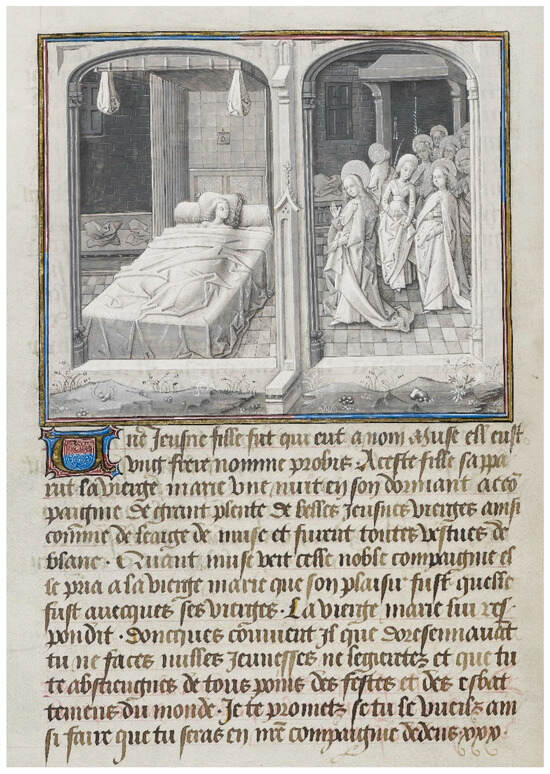 Une Jeusne fille fut qui eut a nom Muse ell eust
vng frere nomme probus. Aceste fille sappa
rut la vierge marie vne nuit en son dormant accō
paignie de grant plente de belles Jeusnes vierges ainsi
comme de leaige de muse et furent toutes vestues de
blanc. Quant muse veit celle noble compaignie el
le pria a la vierge marie que son plaisir fust quelle
fust auecques ses vierges. La vierge marie lui res
pondit. doncques conuient Jl que doresennauāt
tu ne faces nulles Jeunesses ne legieretez et que tu
te abstiengnes de tous poins des festes et des esbat
temens du monde. Je te prometz se tu le vueilz ain
si faire que tu seras en mē compaignie dedens xxx.